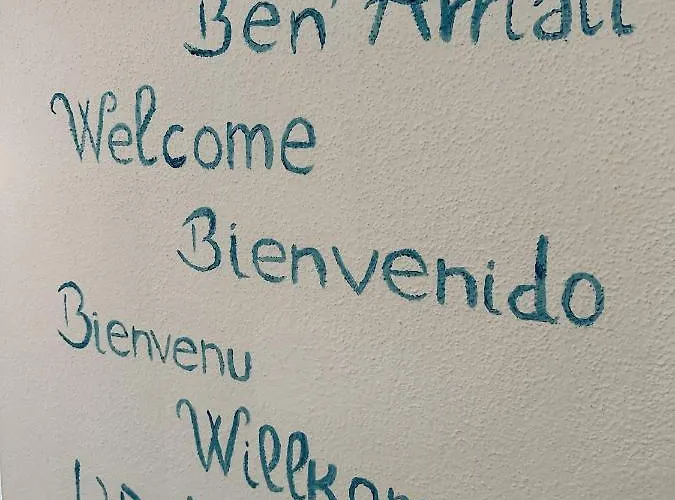 Ben Arrivati
Welcome
Bienvenido
Bienvenu
Willkom